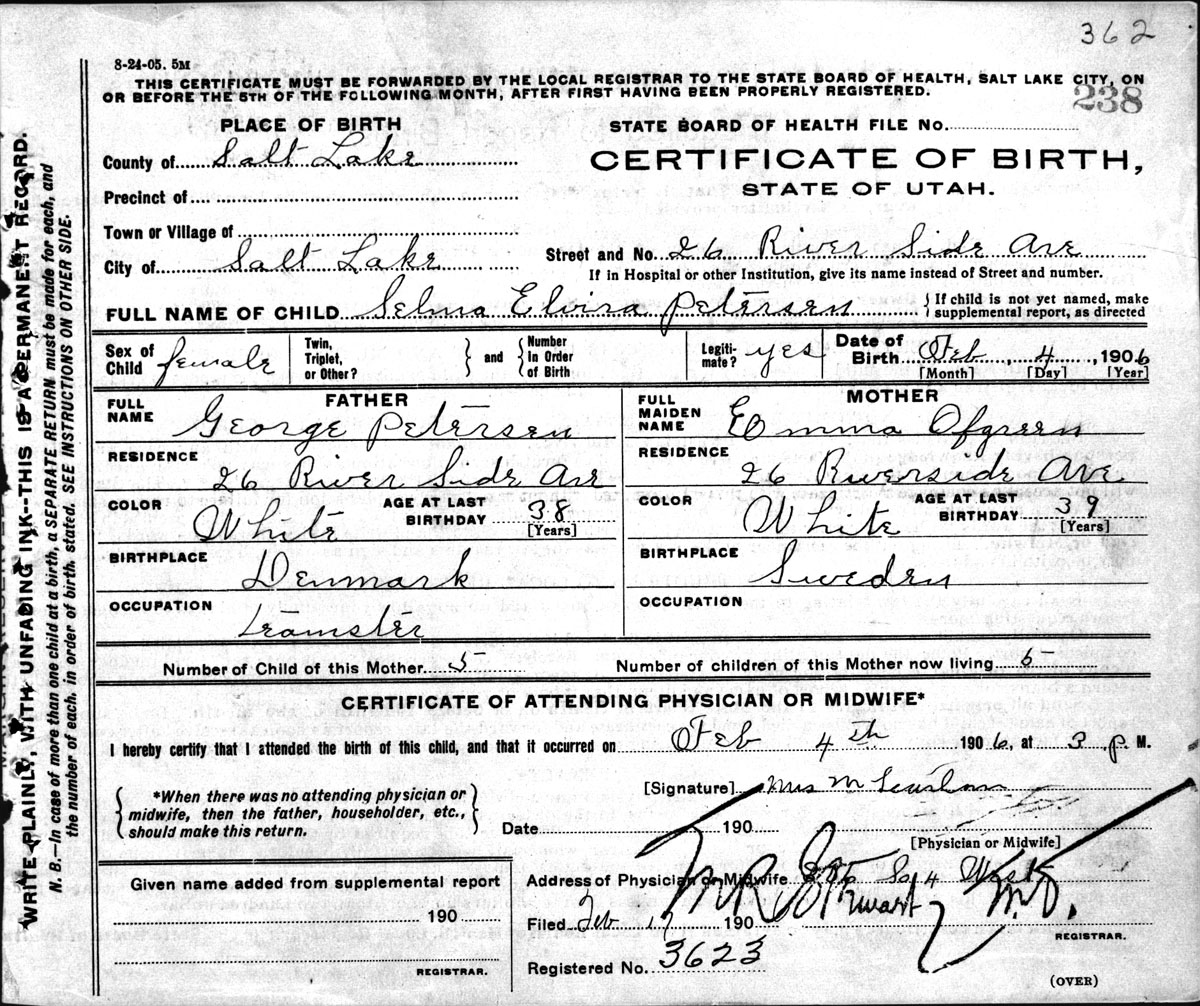 362
8-24-05. 5M
THIS CERTIFICATE MUST BE FORWARDED BY THE LOCAL REGISTRAR TO THE STATE BOARD OF HEALTH, SALT LAKE CITY, ON
OR BEFORE THE 5TH OF THE FOLLOWING MONTH, AFTER FIRST HAVING BEEN PROPERLY REGISTERED.
238
PLACE OF BIRTH
STATE BOARD OF HEALTH FILE No.
County of Salt Lake
CERTIFICATE OF BIRTH,
STATE OF UTAH.
Precinct of
Town or Village of
City of Salt Lake
Street and No. 26 River Side Ave
If in Hospital or other Institution, give its name instead of Street and number.
FULL NAME OF CHILD Selma Elvira Petersen
{ If child is not yet named, make
supplemental report, as directed
Sex of Child female
Twin, Triplet, or Other? } and { Number In Order of Birth
Legiti-mate? yes
Date of Birth Feb, 4, 1906
[Month] [Day] [Year]
FATHER
FULL NAME George Petersen
RESIDENCE
26 River Side Ave
COLOR White
AGE AT LAST BIRTHDAY 38 [Years]
BIRTHPLACE
Denmark
OCCUPATION
Teamster
MOTHER
FULL MAIDEN NAME Emma Ofgreen
RESIDENCE
26 Riverside Ave
COLOR White
AGE AT LAST BIRTHDAY 39 [Years]
BIRTHPLACE
Sweden
OCCUPATION
Number of Child of this Mother 5
Number of children of this Mother now living 5
CERTIFICATE OF ATTENDING PHYSICIAN OR MIDWIFE*
I hereby certify that I attended the birth of this child, and that it occurred on Feb 4th 1906, at 3 p M.
[Signature] Mrs M
{ *When there was no attending physician or
midwife, then the father, householder, etc.,
should make this return. }
Date 190
[Physician or Midwife]
Address of Physician or Midwife So 4 West
Given name added from supplemental report
190
REGISTRAR.
Filed Feb 17 190
REGISTRAR.
Registered No. 3623
(OVER)
WRITE PLAINLY, WITH UNFADING INK--THIS IS A PERMANENT RECORD.
N. B.--In case of more than one child at a birth, a SEPARATE RETURN must be made for each, and
the number of each, in order of birth, stated. SEE INSTRUCTIONS ON OTHER SIDE.